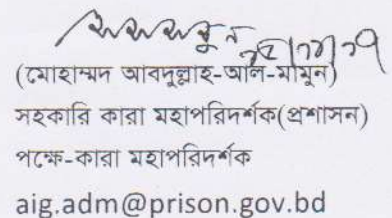 (মোহাম্মদ আবদুল্লাহ-আল-মামুন)
সহকারি কারা মহাপরিদর্শক(প্রশাসন)
পক্ষে-কারা মহাপরিদর্শক
aig.adm@prison.gov.bd